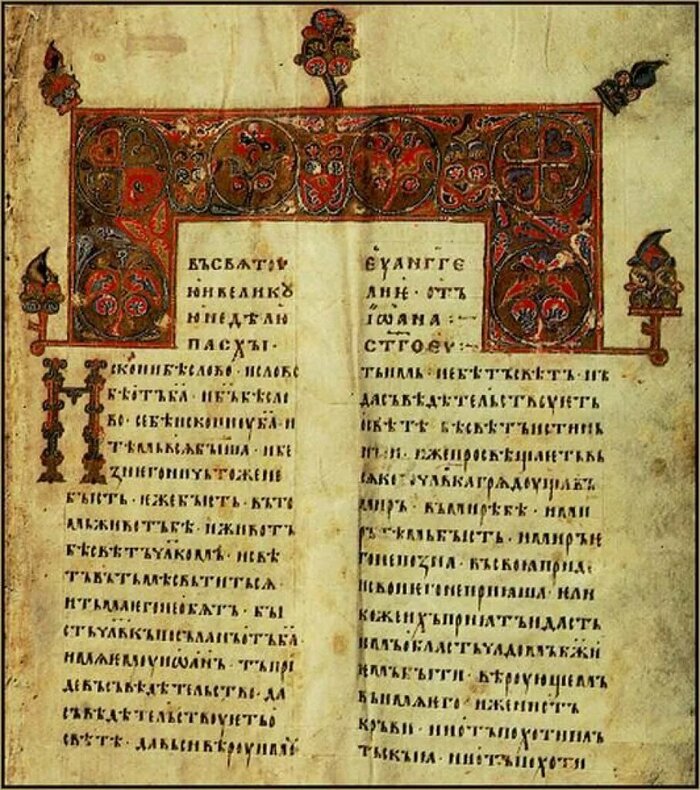 ВЪСВѦТОУ
ЮИВЕЛИКОУ
ЮНЕДѢЛЮ
ПАСХЫ·
ИСКОНИБѢСЛОВО·ИСЛОВО
БѢОТЪБ҃А·ИБ҃ЪБѢСЛО
ВО·СЕБѢИСКОНИОУБ҃А·И
ТѢМЬВСѦБЫША·ИБЕ
ЗНЕГОНИЧЬТОЖЕНЕ
БЫСТЬ·ИЖЕБЫСТЬ·ВЪТО
МЬЖИВОТЪБѢ·ИЖИВОТЪ
БѢСВѢТЪЧЛ҃КОМЪ·ИСВѢ
ТЪВЪТЬМѢСВЬТИТЬСѦ·
ИТЬМАѤГОНЕОБѦТЪ·БЫ
СТЬЧЛ҃ВКЪПОСЪЛАНЪОТЪБ҃А·
ИМѦѤМОУИѠАНЪ·ТЪПРИ
ДЕВЪСЪВѢДѢТЕЛЬСТВО·ДА
СЪВѢДѢТЕЛЬСТВОУѤТЬО
СВѢТѢ·ДАВЬСИВѢРОУИМОУ
ЕУАНГГЕ
ЛИѤ·ОТЪ
ІѠАНА:~
СТ҃ГОЕУ:~
ТЬИМЬ·НЕБѢТЪСВѢТЪ·НЪ
ДАСЪВѢДѢТЕЛЬСТВОУѤТЬ
ОСВѢТѢ·БѢСВѢТЪИСТИНЬ
НЫИ·ИЖЕПРОСВѢЩАѤТЬВЬ
СѦКОГОЧЛ҃ВКАГРѦДОУЩАВЪ
МИРЪ·ВЪМИРѢБѢ·ИМИ
РЪТѢМЬБЫСТЬ·ИМИРЪѤ
ГОНЕПОЗНА·ВЪСВОꙖПРИДЕ·
ИСВОИѤГОНЕПРИꙖША·ИЛИ
КОЖЕИХЪПРИꙖТЪИДАСТЬ
ИМЪОБЛАСТЬЧАДОМЪБ҃ЖИ
ѤМЪБЫТИ·ВѢРОУЮЩЕМЪ
ВЪИМѦѤГО·ИЖЕНИОТ
КРЪВИ·НИОТЪПОХОТИПЛЪ
ТЬСКЫꙖ·НИОТЪПОХОТИ